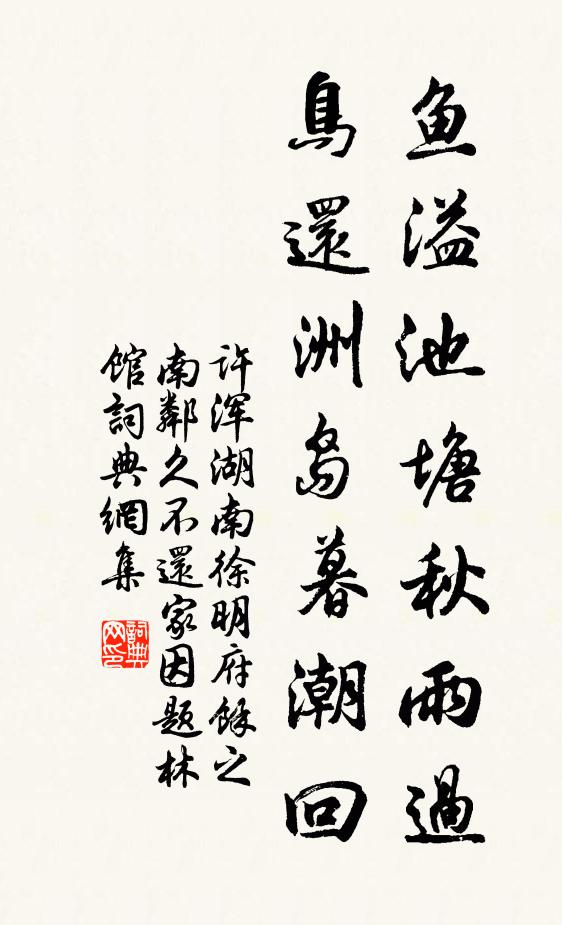 鱼溢池塘秋雨過
鳥還洲岛暮潮回
许渾湖南徐明府餘之
南鄰久不還家因题林
馆詞典網集
詞典网印